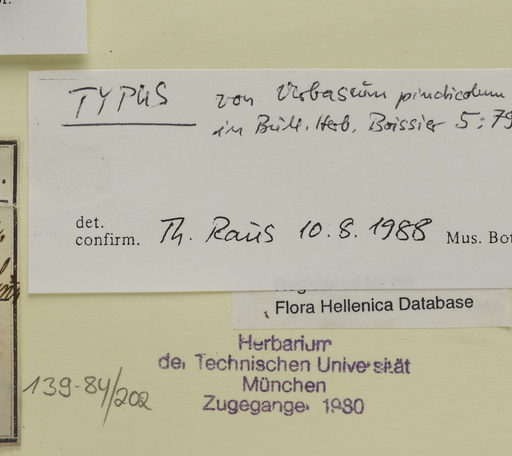 TYPUS von Verbascum pindicolum
in Bull. Herb. Boissier 5: 79
det.
confirm. Th. Raus 10.8.1988 Mus. Bot
Flora Hellenica Database
Herbarium
der Technischen Universität
München
Zugegangen 1980
139-84/202